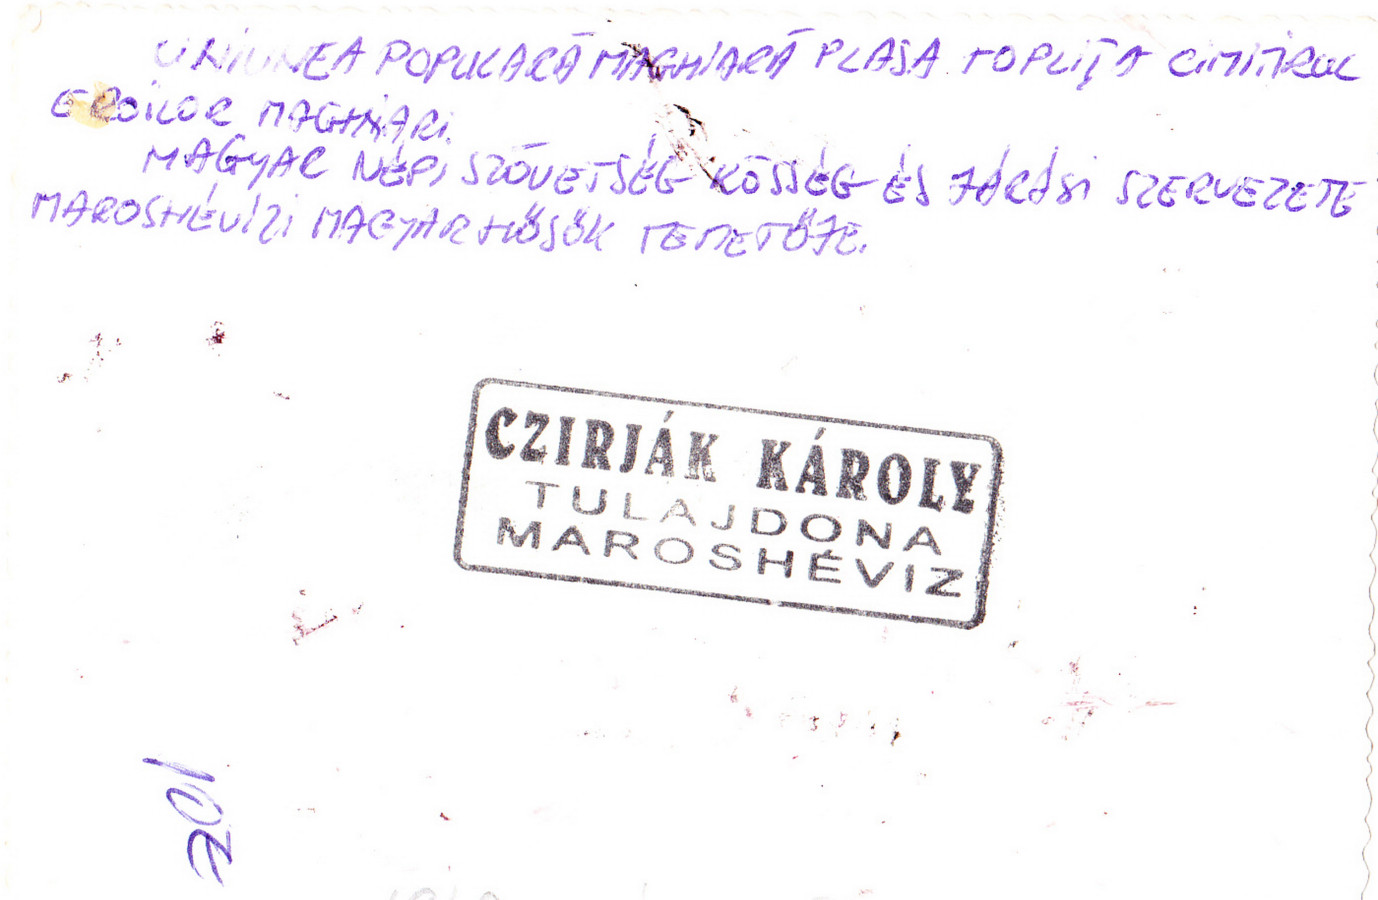 UNIUNEA POPULARĂ MAGHIARĂ PLASA TOPLIȚA CIMITIRUL
EROILOR MAGHIARI.
MAGYAR NÉPI SZÖVETSÉG KÖSSÉG ÉS JÁRÁSI SZERVEZETE
MAROSHÉVIZI MAGYAR HŐSÖK TEMETŐJE.
CZIRJÁK KÁROLY
TULAJDONA
MAROSHÉVIZ
201